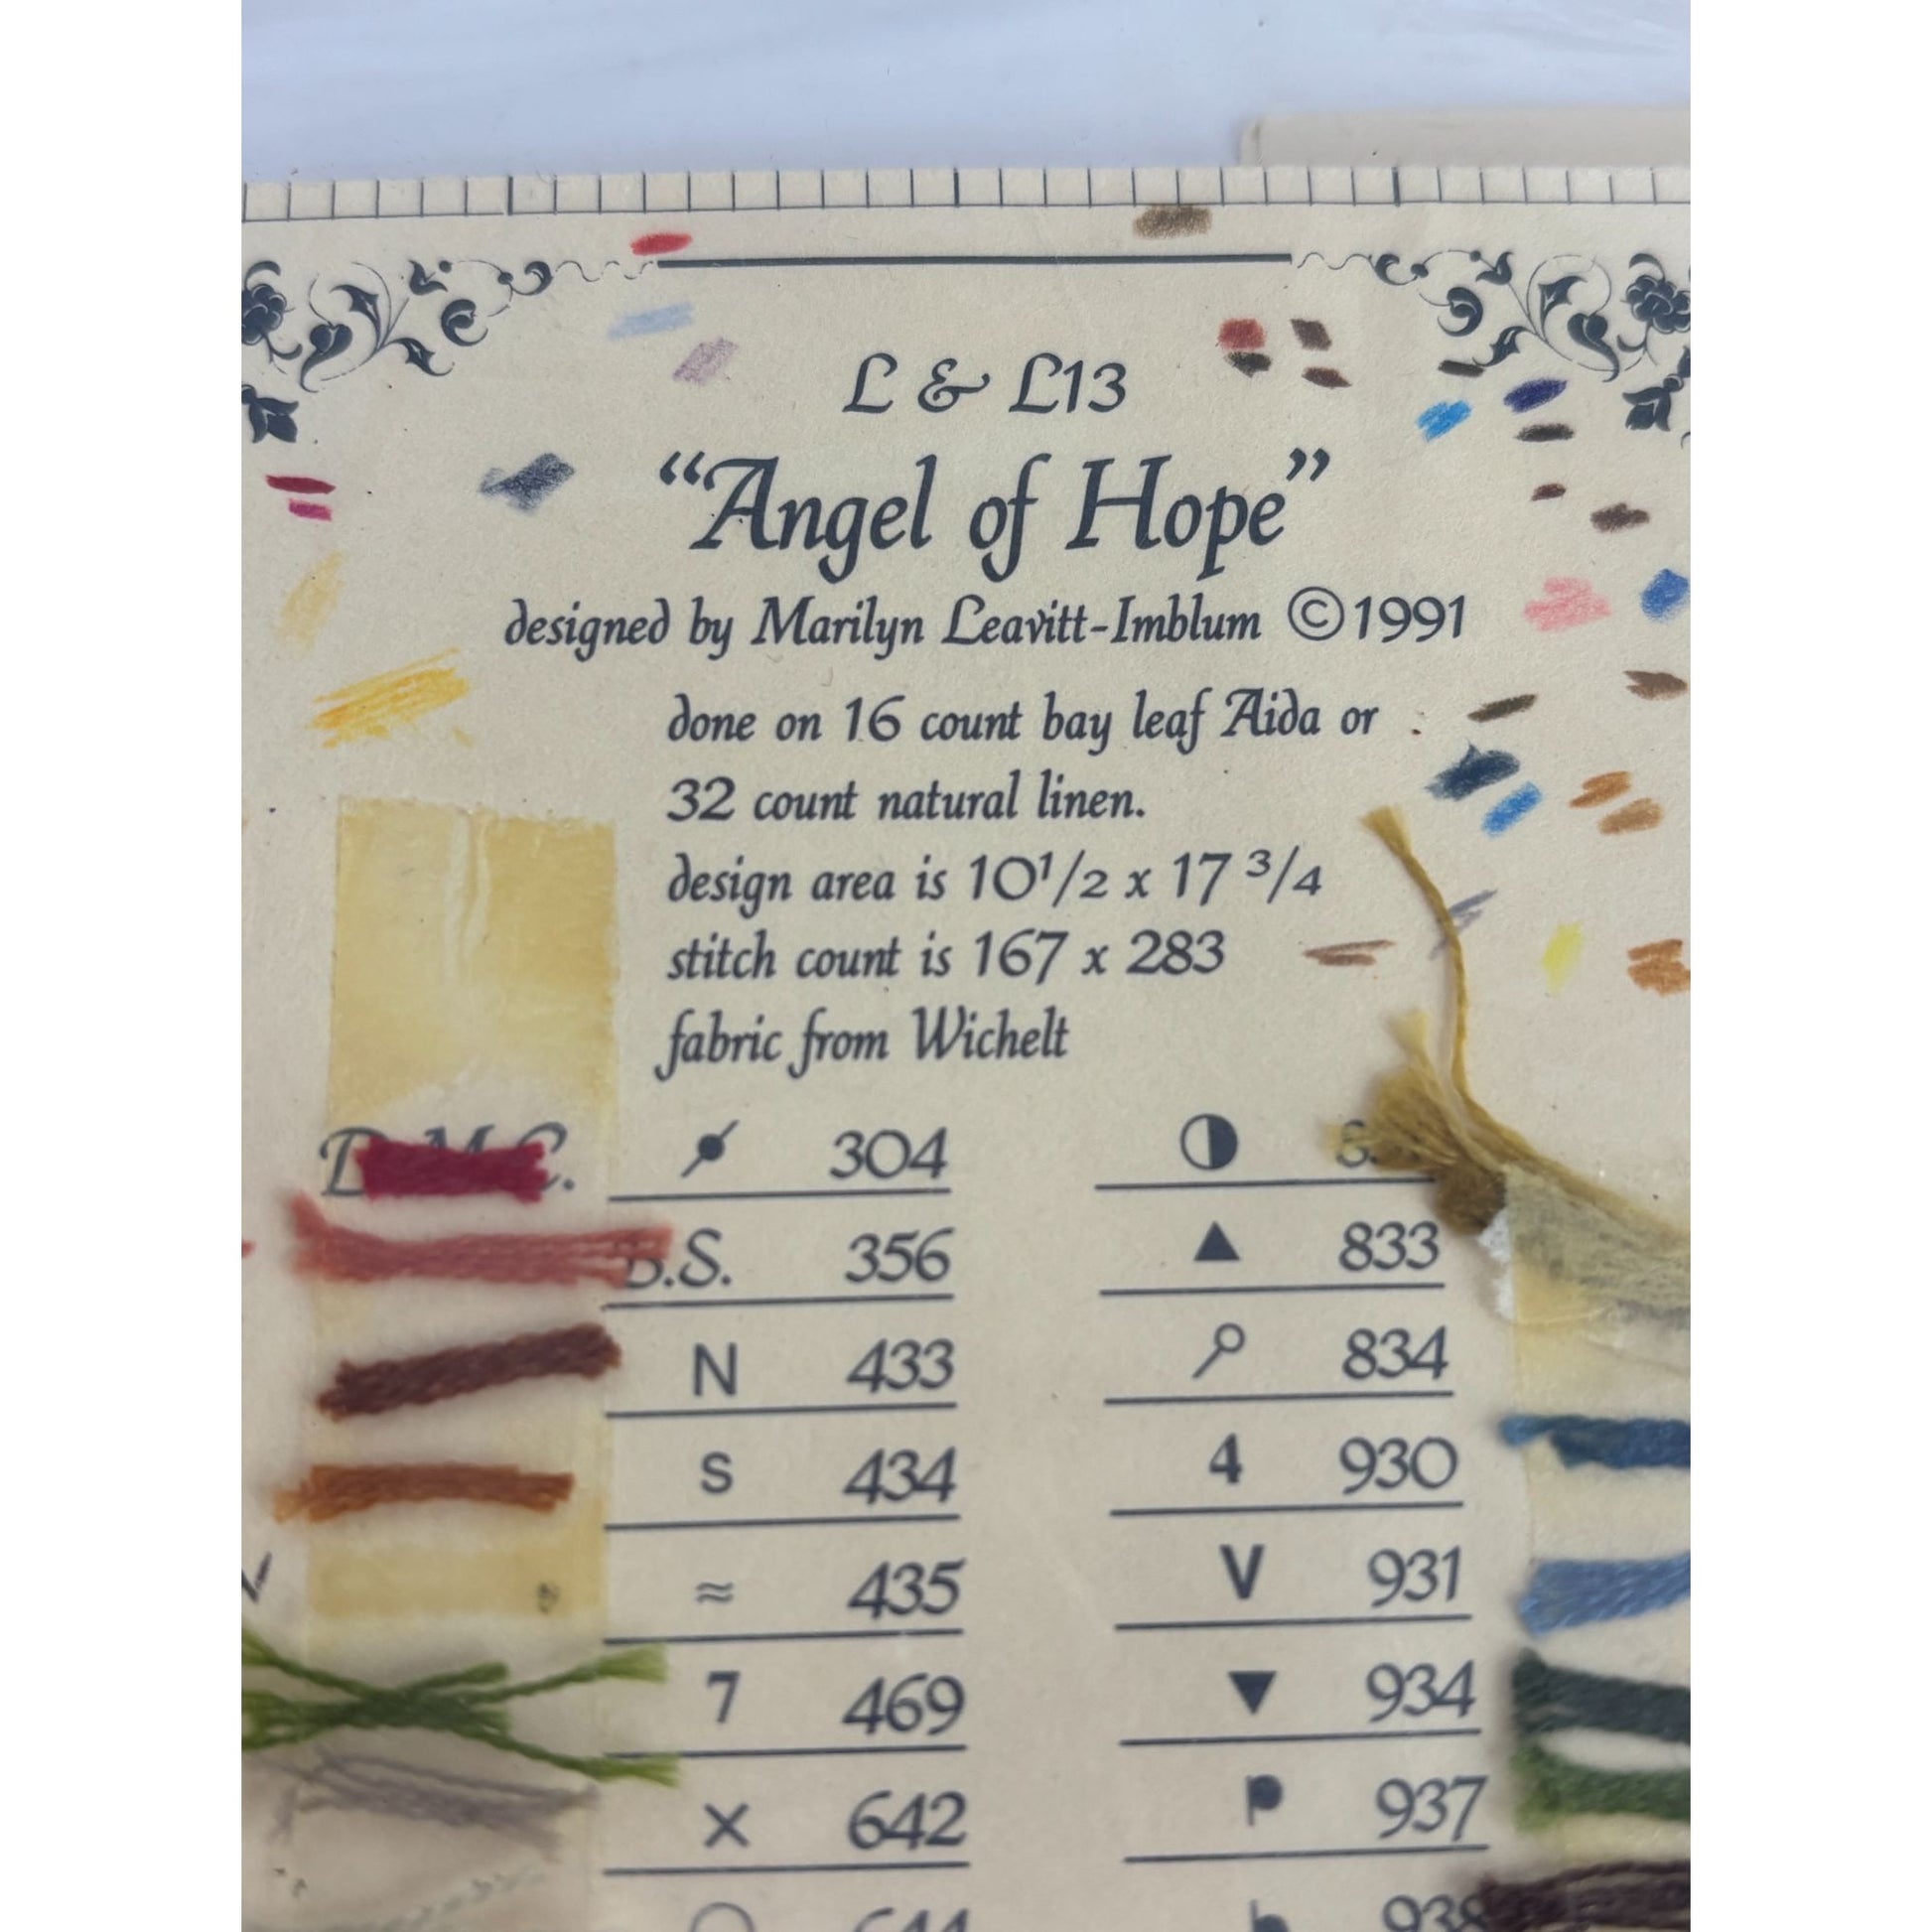 L & L13
“Angel of Hope”
designed by Marilyn Leavitt-Imblum ©1991
done on 16 count bay leaf Aida or
32 count natural linen.
design area is 10 1/2 x 17 3/4
stitch count is 167 x 283
fabric from Wichelt
D.M.C. 304
B.S. 356 ▲ 833
N 433 834
S 434 4 930
≈ 435 V 931
7 469 ▼ 934
× 642 937
938